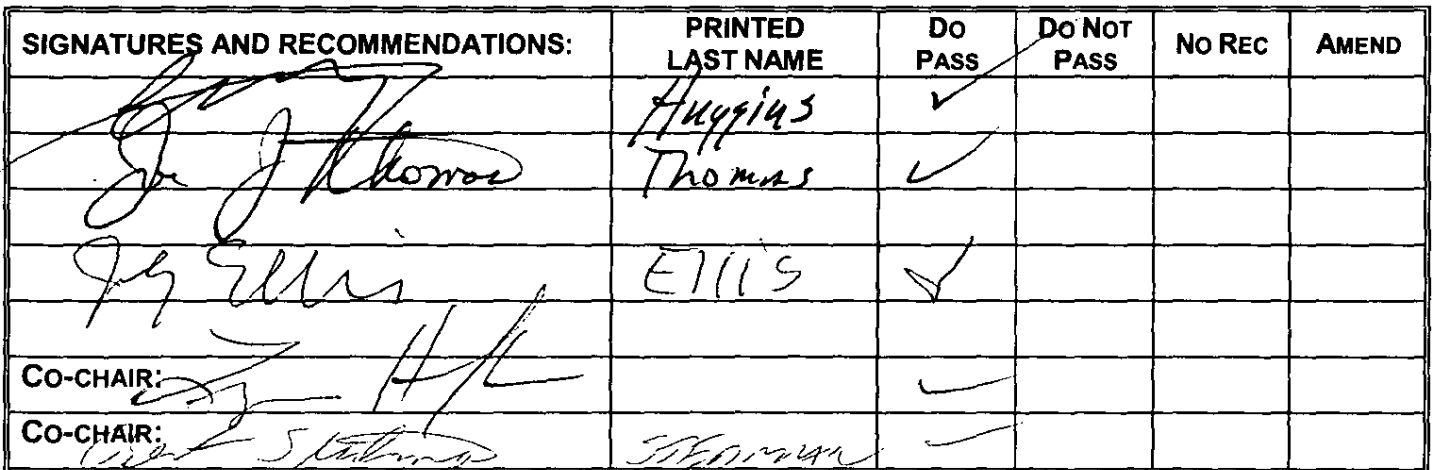 SIGNATURES AND RECOMMENDATIONS: PRINTED LAST NAME DO PASS DO NOT PASS NO REC AMEND
Huggins ✓
Joe J Thomas Thomas ✓
Ellis Ellis ✓
CO-CHAIR: ✓
CO-CHAIR: ✓